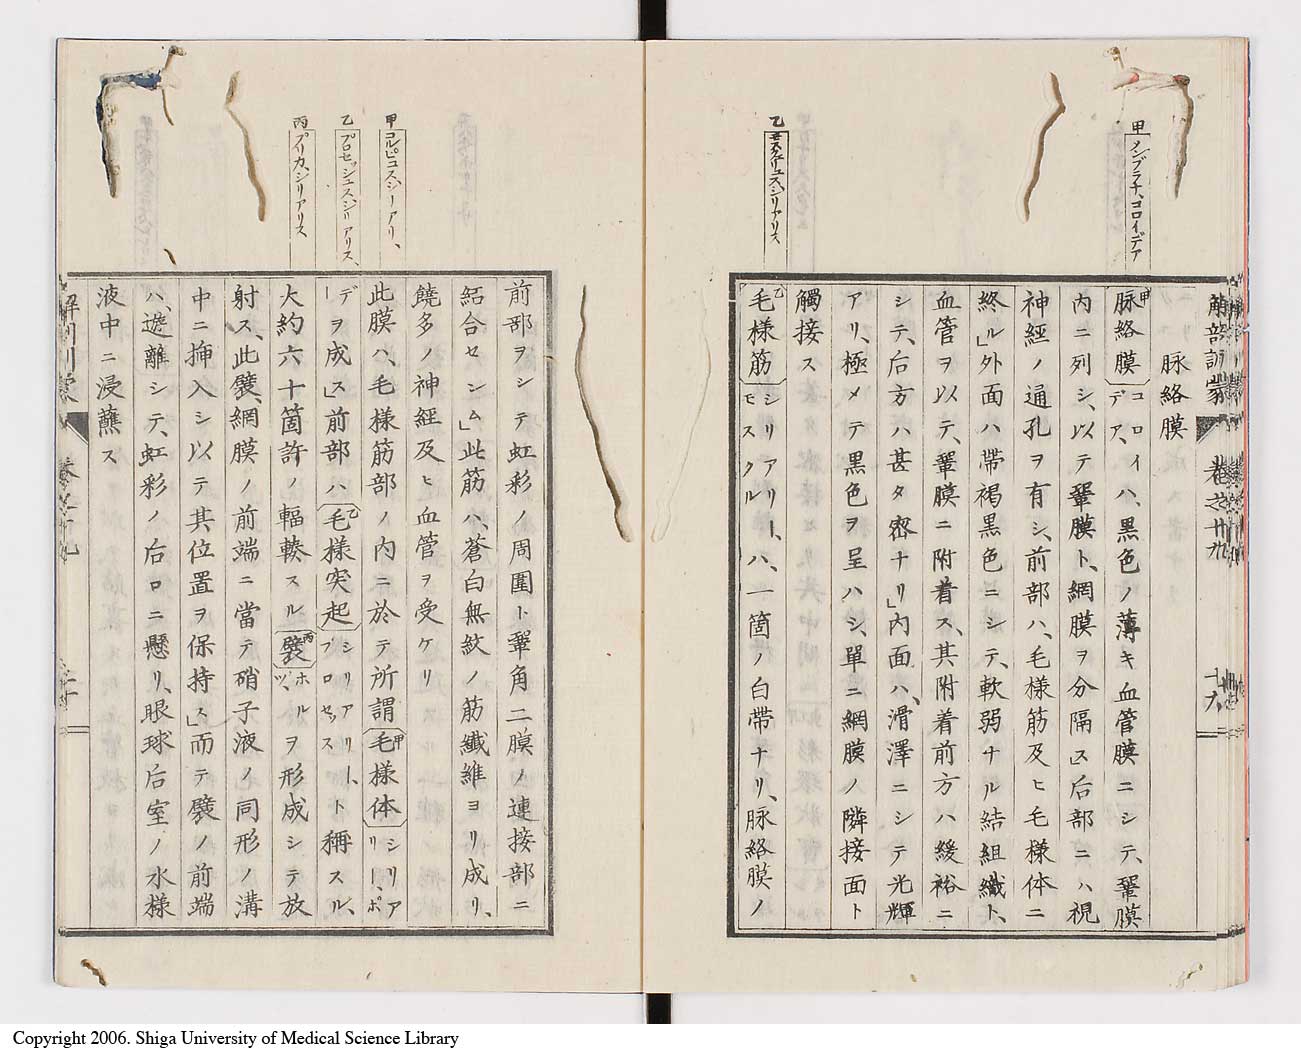 解剖訓蒙
甲 メンブラナ、コロイデア
乙 ミュスクリュス、シリアリス
脉絡膜
脉絡膜 コロイデア、ハ、黒色ノ薄キ血管膜ニシテ、鞏膜
内ニ列シ、以テ鞏膜ト、網膜ヲ分隔ス」后部ニハ視
神經ノ通孔ヲ有シ、前部ハ、毛様筋及ヒ毛様体ニ
終ル」外面ハ帶褐黒色ニシテ、軟弱ナル結組織ト、
血管ヲ以テ、鞏膜ニ附着ス、其附着前方ハ緩裕ニ
シテ、后方ハ甚タ密ナリ」内面ハ、滑澤ニシテ光輝
アリ、極メテ黒色ヲ呈ハシ、單ニ網膜ノ隣接面ト
觸接ス
乙毛様筋 シリアリー、モスクル ハ、一箇ノ白帶ナリ、脉絡膜ノ
甲 コルピュス、シリアリ、
乙 プロセッシュス、シリアリス、
丙 プリカ、シリアリス
前部ヲシテ虹彩ノ周圍ト鞏角二膜ノ連接部ニ
結合セシム」此筋ハ、蒼白無紋ノ筋纎維ヨリ成リ、
饒多ノ神經及ヒ血管ヲ受ケリ
此膜ハ、毛様筋部ノ内ニ於テ所謂甲毛様体 シリアリー、ボ
デーヲ成ス」前部ハ乙毛様突起 シリアリー、プロセッス ト稱スル、
大約六十箇許ノ輻輳スル丙襞 ホルヅ、ヲ形成シテ放
射ス、此襞、網膜ノ前端ニ當テ硝子液ノ同形ノ溝
中ニ挿入シ以テ其位置ヲ保持ス」而テ襞ノ前端
ハ、遊離シテ、虹彩ノ后口ニ懸リ、眼球后室ノ水様
液中ニ浸蘸ス